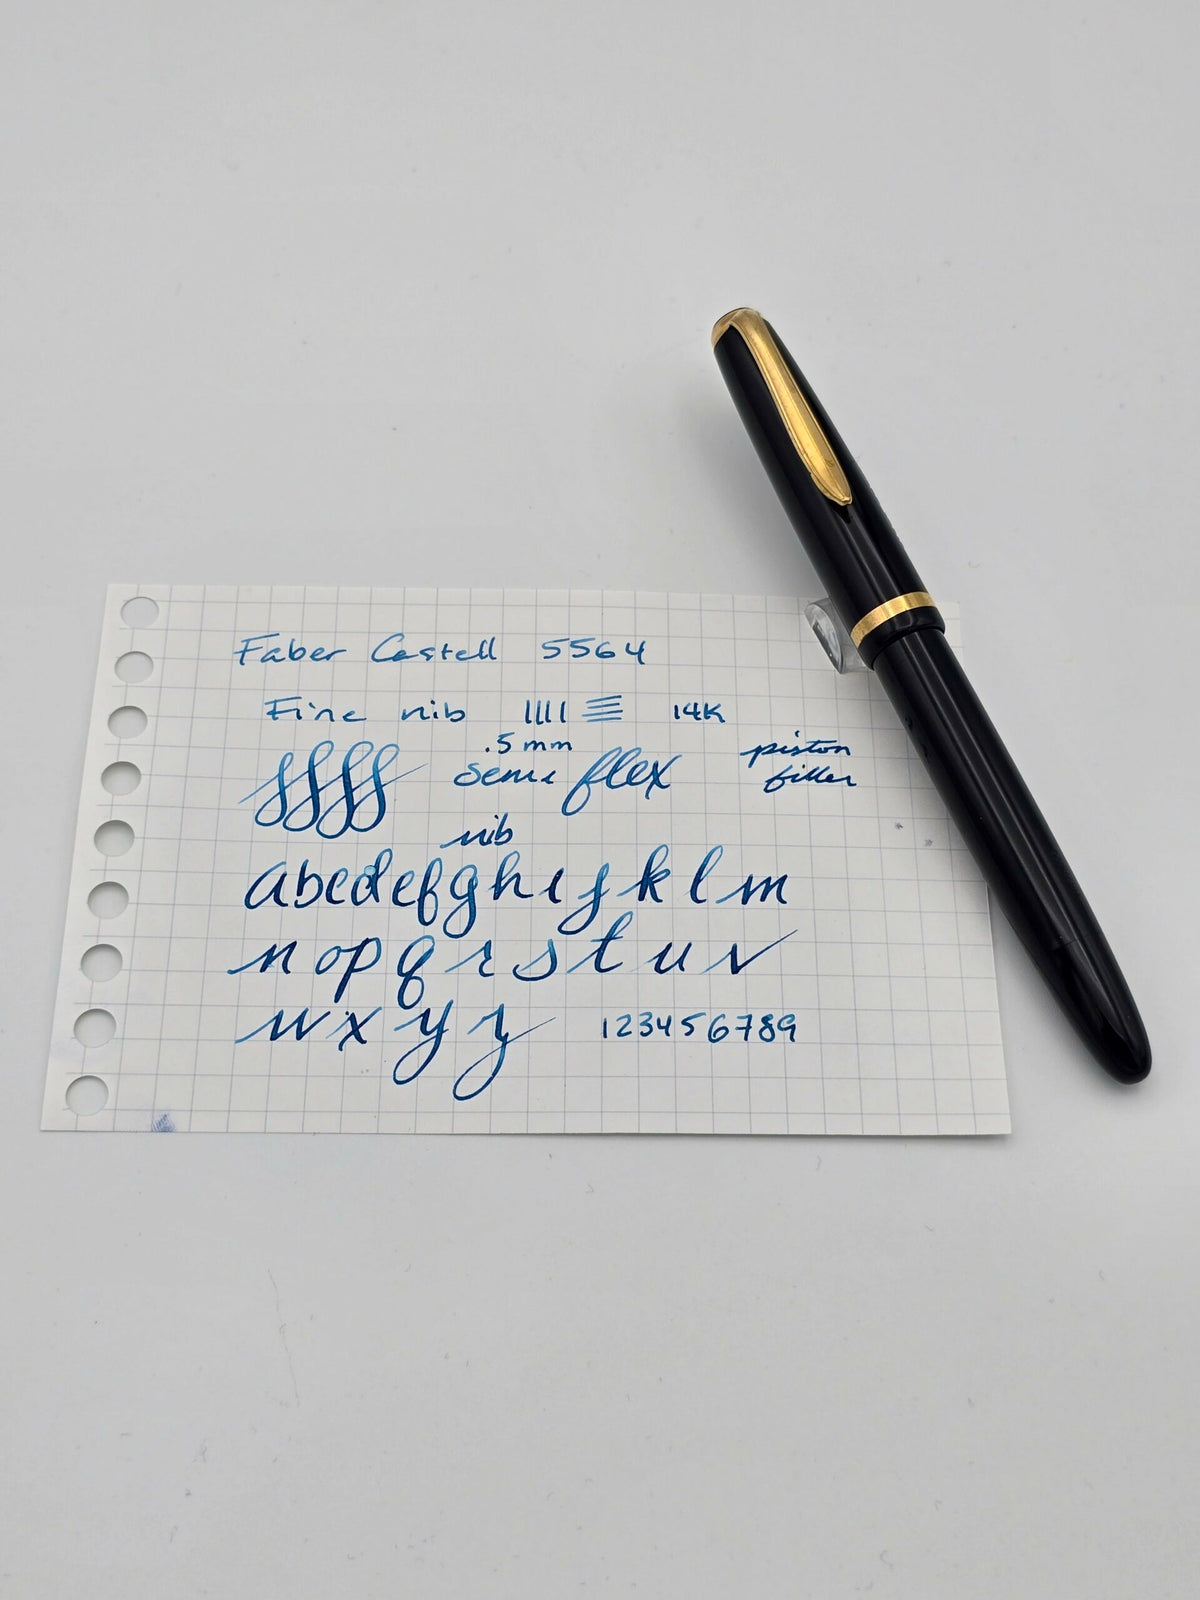 Faber Castell 5564
Fine nib 14K
.5mm
semi flex
piston
filler
nib
abcdefghijklm
nopqrstuv
wxyz
123456789